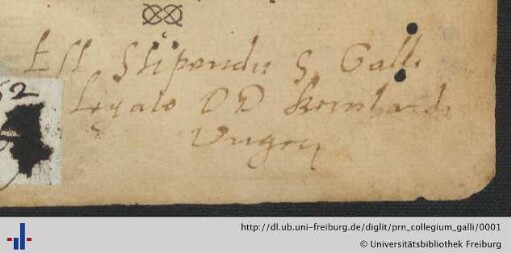 Est Stipendii S. Galli
52 Legato DD Reinhardi
http://dl.ub.uni-freiburg.de/diglit/prn_collegium_galli/0001
© Universitätsbibliothek Freiburg